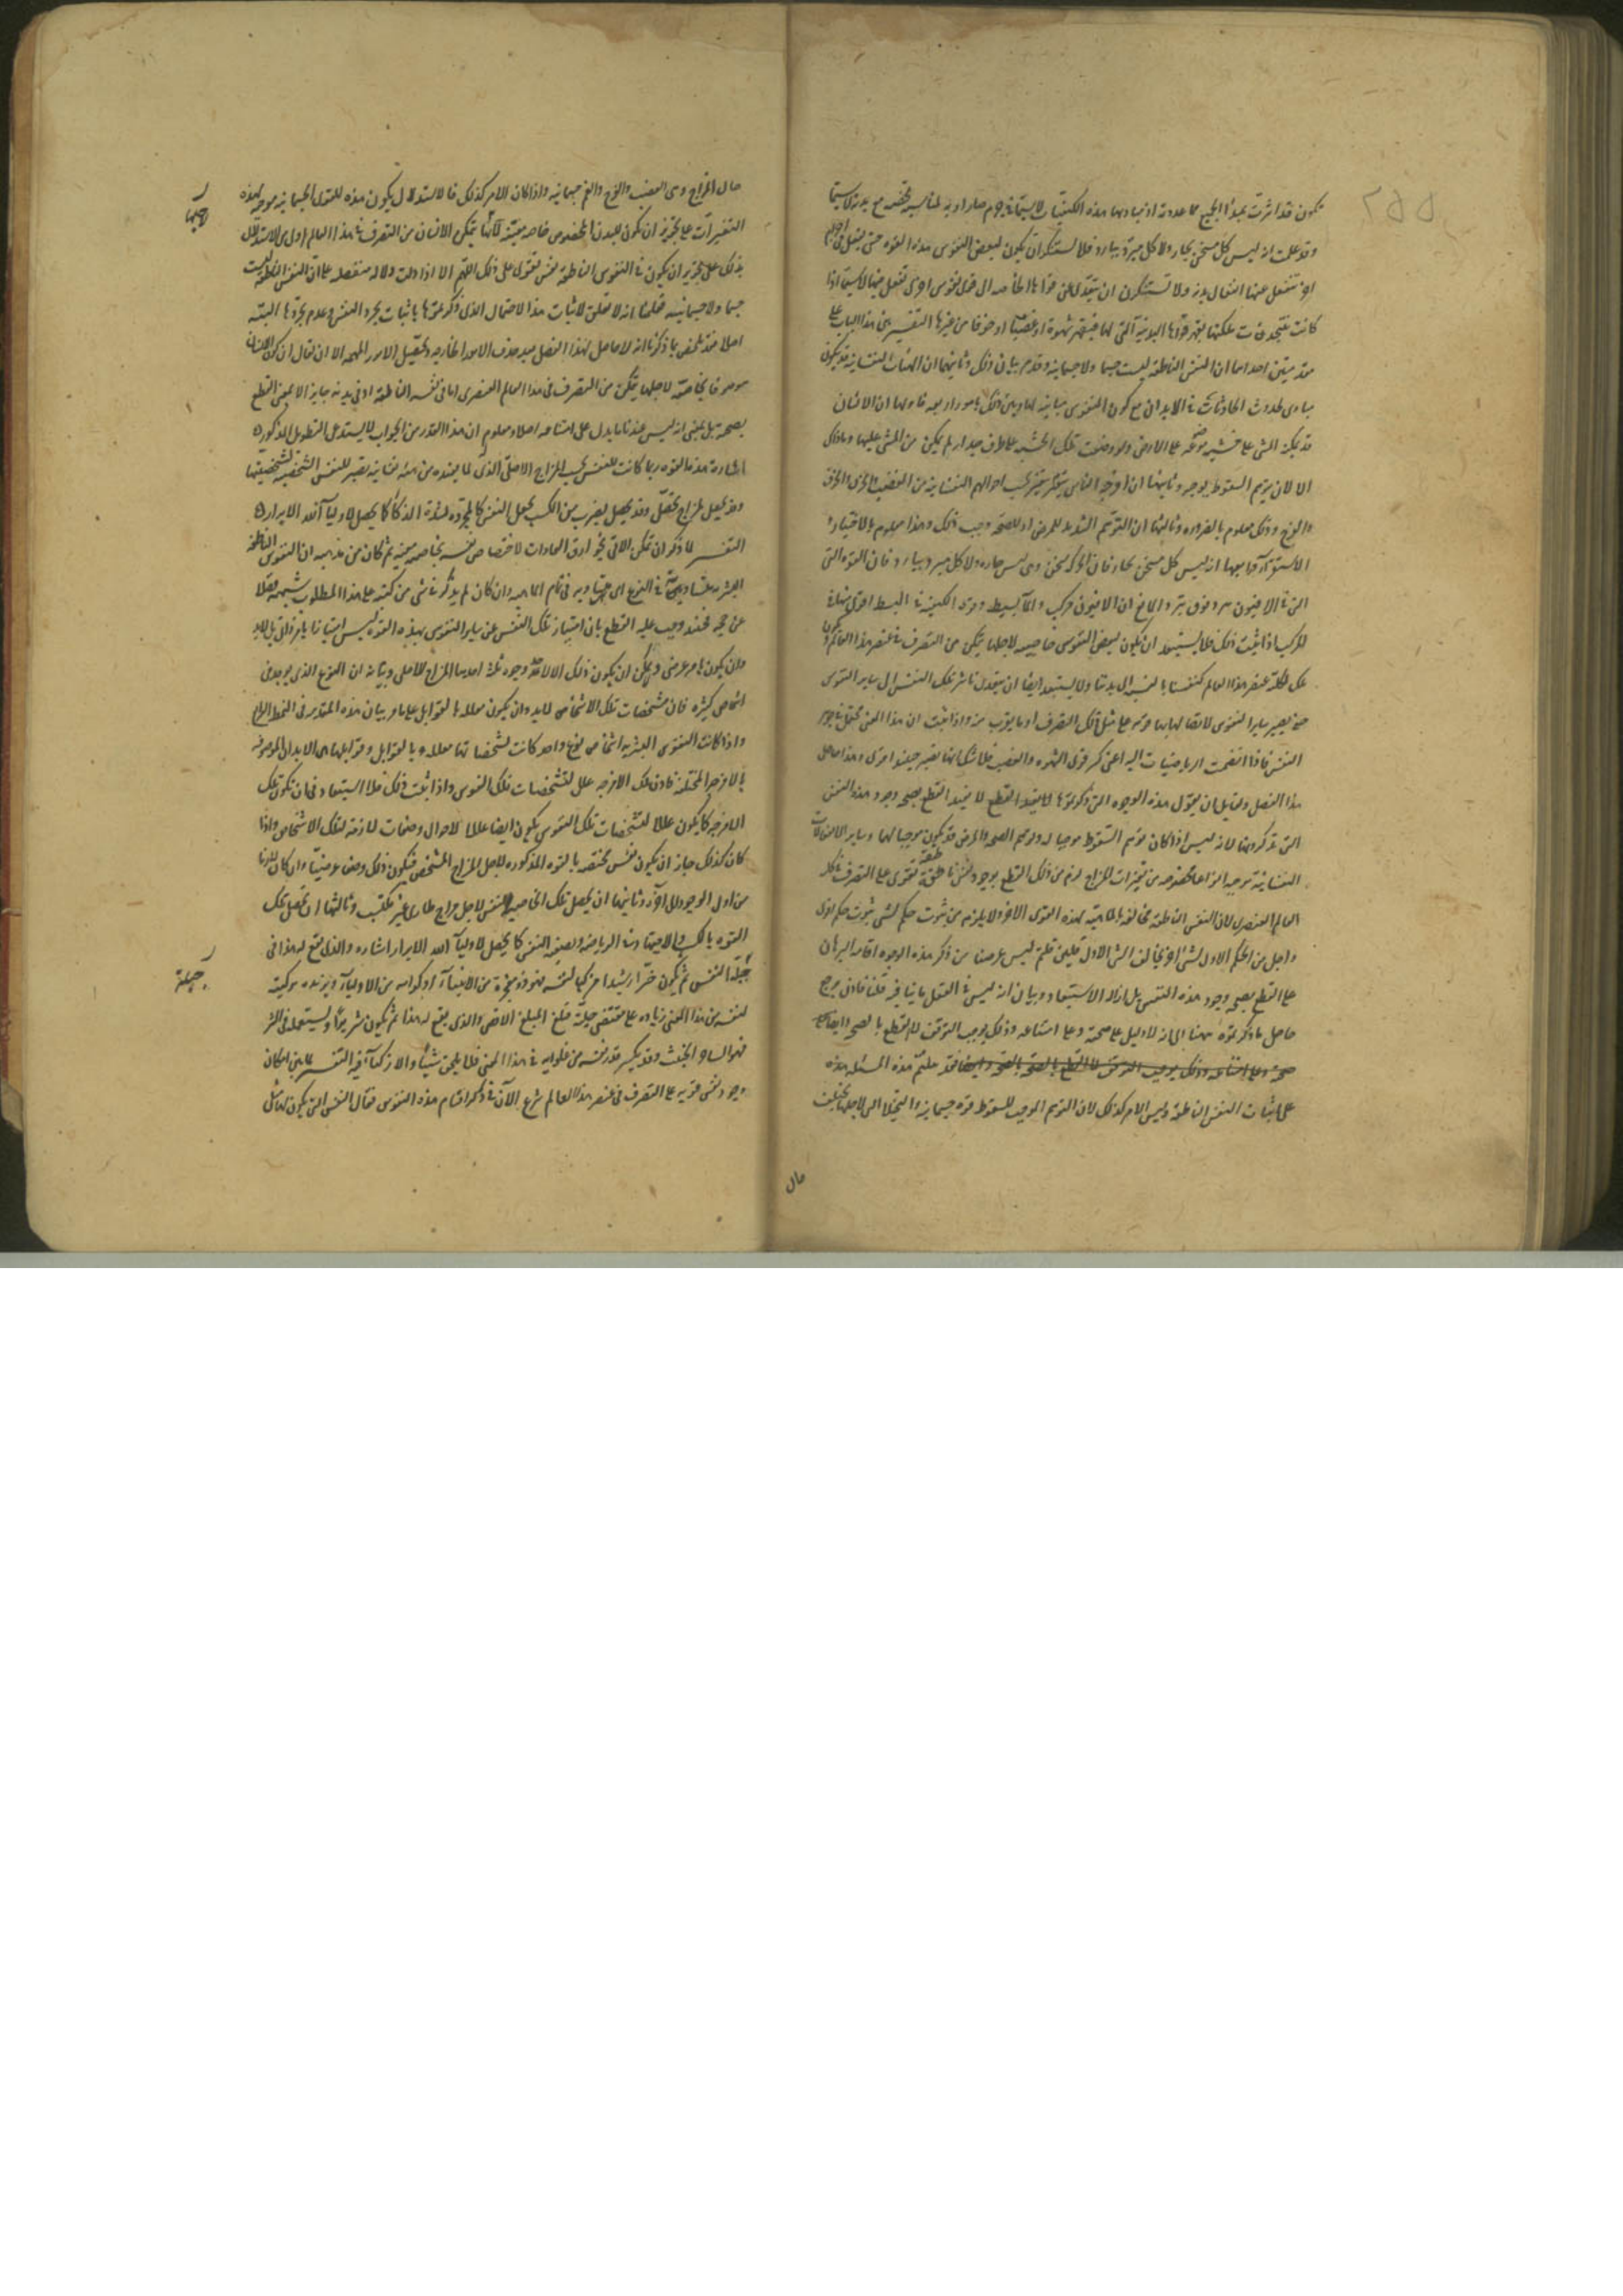 تكون قد اثرت بمبدأ الجميع مما عددته اذ مباديها هذه الكيفيات لا سيما في جرم صار اولى به لمناسبة تخصه مع بدنه لا سيما
وقد علمت انه ليس كل مسخن بحار ولا كل مبرد ببارد فلا تستنكرن ان يكون لبعض النفوس هذه القوة حتى تفعل في اجرام
اخر تنفعل عنها انفعال بدنه ولا تستنكرن ان يتعدى عن قواها الخاصة الى قوى نفوس اخرى تفعل فيها لا سيما اذا
كانت شحذت ملكتها بقهر قواها البدنية التي لها فتقهر شهوة او غضبا او خوفا من غيرها التفسير بنى هذا الباب على
مقدمتين احداهما ان النفس الناطقة ليست جسما ولا جسمانية وقد مر بيان ذلك وثانيهما ان الهيئات النفسانية قد تكون
مبادى لحدوث الحادثات في الابدان مع كون النفوس مباينة لها وبين ذلك بامور اربعة فاولها ان الانسان
قد يمكنه المشى على خشبة موضوعة على الارض ولو وضعت تلك الخشبة على طرف جدار لم يمكن من المشى عليها وما ذلك
الا لان توهم السقوط يوجبه وثانيها ان امزجة الناس يتغير بحسب احوالهم النفسانية من الغضب والحزن والخوف
والفرح وذلك معلوم بالضرورة وثالثها ان التوهم الشديد للمرض او للصحة يوجب ذلك وهذا معلوم بالاختيار و
الاستقراء ورابعها انه ليس كل مسخن بحار فان الحركة تسخن وهى ليس حارة ولا كل مبرد ببارد فان القوة التي
التي في الافيون مبردة فوق تبريد الماء مع ان الافيون مركب والماء بسيط وقوة الكيفية في البسيط اقوى منها في
المركب اذا ثبت ذلك فلا يستبعد ان يكون لبعض النفوس خاصية لاجلها يتمكن من التصرف في عنصر هذا العالم و يكون
تلك لكلية عنصر هذا العالم كنفسنا بالنسبة الى بدننا ولا يستبعد ايضا ان يتعدى تأثير تلك النفس الى ساير النفوس
حتى يصير ساير النفوس لاتصالها بها قوية على مثل ذلك التصرف او ما يقرب منه واذا ثبت ان هذا المعنى محتمل في جوهر
النفس فاذا انضمت الرياضيات اليه اعنى كسر قوى الشهوة والغضب فلا شك انها تصير حينئذ اقوى وهذا حاصل
هذا الفصل ولقايل ان يقول هذه الوجوه التي ذكرتموها لا يفيد القطع لا يفيد القطع بصحة وجود هذه النفس
التي تذكرونها لانه ليس اذا كان توهم السقوط موجبا له وتوهم الصحة والمرض قد يكون موجبا لهما وساير الانفعالات
النفسانية توجب انواعا مخصوصة من تغيرات المزاج لزم من ذلك القطع بوجود نفس ناطقة تقوى على التصرف في كل
العالم العنصرى لان النفس الناطقة مخالفة بالماهية لهذه القوى الاخر ولا يلزم من ثبوت حكم لشى ثبوت حكم اقوى
واجل من الحكم الاول لشى اخر مخالف للشى الاول فلئن قلتم ليس غرضنا من ذكر هذه الوجوه اقامة البرهان
على القطع بصحة وجود هذه النفس بل ازالة الاستبعاد وبيان انه ليس في العقل ما ينافيه قلنا فاذن يرجع
حاصل ما ذكرتموه ههنا الى انه لا دليل على صحته وعلى امتناعه وذلك يوجب التوقف لا القطع بالصحة وايضا
فقد علقتم هذه المسئلة هذه
على اثبات النفس الناطقة وليس الامر كذلك لان التوهم الموجب للسقوط قوة جسمانية والتخيلات التي لاجلها يختلف
حال
حال المزاج وهى الغضب والفرح والغم جسمانية واذا كان الامر كذلك فالاستدلال بكون هذه القوى الجسمانية موجبة لهذه
التغيرات على تجويز ان تكون للبدن المخصوص خاصة معينة لاجلها يتمكن الانسان من التصرف في هذا العالم اولى من الاستدلال
بذلك على تجويز ان يكون في النفوس الناطقة نفس تقوى على ذلك اللهم الا اذا دلت دلالة منفصلة على ان النفس الناطقة ليست
جسما ولا جسمانية فعلمنا انه لا تعلق لاثبات هذا الاحتمال الذى ذكرتموها باثبات تجرد النفس وعدم تجردها البتة
اصلا فقد تلخص بما ذكرنا انه لا حاصل لهذا الفصل بعد حذف الامور الخارجة وتحصيل الامور المهمة الا ان يقال ان كون الانسان
موصوفا بخاصة لاجلها يتمكن من التصرف في هذا العالم العنصرى اما في نفسه الناطقة او في بدنه جايز لا بمعنى القطع
بصحته بل بمعنى انه ليس عندنا ما يدل على امتناعه اصلا ومعلوم ان هذا القدر من الجواب لا يستدعى التطويل المذكور
اشارة هذه القوة ربما كانت للنفس بحسب المزاج الاصلى الذى لما يفيده من هيئة نفسانية تصير للنفس الشخصية تشخصيتها
وقد يحصل لمزاج يحصل وقد يحصل بضرب من الكسب يجعل النفس كالمجردة لشدة الذكاء كما يحصل لاولياء الله الابرار
التفسير لما ذكر ان تمكن الاتى بخوارق العادات لاختصاص نفسه بخاصية معينة ثم كان من مذهبه ان النفوس الناطقة
البشرية متساوية في النوع اى متساوية في تمام الماهية وان كان لم يذكر في شى من كتبه على هذا المطلوب شبهة فضلا
عن حجة فحينئذ وجب عليه القطع بان امتياز تلك النفس عن ساير النفوس بهذه القوة ليس امتيازا بامر ذاتى بل لابد
وان يكون بامر عرضى ويمكن ان يكون ذلك لاحد وجوه ثلثة احدها المزاج الاصلى وبيانه ان النوع الذى يوجد فى
اشخاص كثيرة فان مشخصات تلك الاشخاص لابد وان يكون معللة بالقوابل على ما مر بيان هذه المقدمة فى النمط الرابع
واذا كانت النفوس البشرية اشخاص نوع واحد كانت تشخصاتها معللة بالقوابل وقوابلها هى الابدان الموصوفة
بالامزجة المختلفة فاذن تلك الامزجة علل لتشخصات تلك النفوس واذا ثبت ذلك فلا استبعاد فى ان تكون تلك
الامزجة كما يكون عللا لتشخصات تلك النفوس يكون ايضا عللا لاحوال وصفات لازمة لتلك الاشخاص واذا
كان كذلك جاز ان يكون نفس مختصة بالقوة المذكورة لاجل المزاج المشخص فيكون ذلك وصفا عرضيا وان كان لازما
من اول الوجود الى اخره وثانيها ان يحصل تلك الخاصية للنفس لاجل مزاج طارى غير مكتسب وثالثها ان يحصل تلك
القوة بالكسب والاجتهاد فى الرياضة وتصفية النفس كما يحصل لاولياء الله الابرار اشارة والذى يقع له هذا فى
جبلة النفس ثم يكون خيرا رشيدا مزكيا لنفسه فهو ذو معجزة من الانبياء او كرامة من الاولياء ويزيده تزكيته
لنفسه من هذا المعنى زيادة على مقتضى جبلته فبلغ المبلغ الاقصى والذى يقع له هذا ثم يكون شريرا ويستعمله فى الشر
فهو الساحر الخبيث وقد يكسر قدر نفسه من غلوائه فى هذا المعنى فلا يلحق شيئا والازكياء فيه التفسير لما بين امكان
وجود نفس قوية على التصرف فى عنصر هذا العالم شرع الآن فى ذكر اقسام هذه النفوس فقال النفس التى يكون كذلك
جبلة